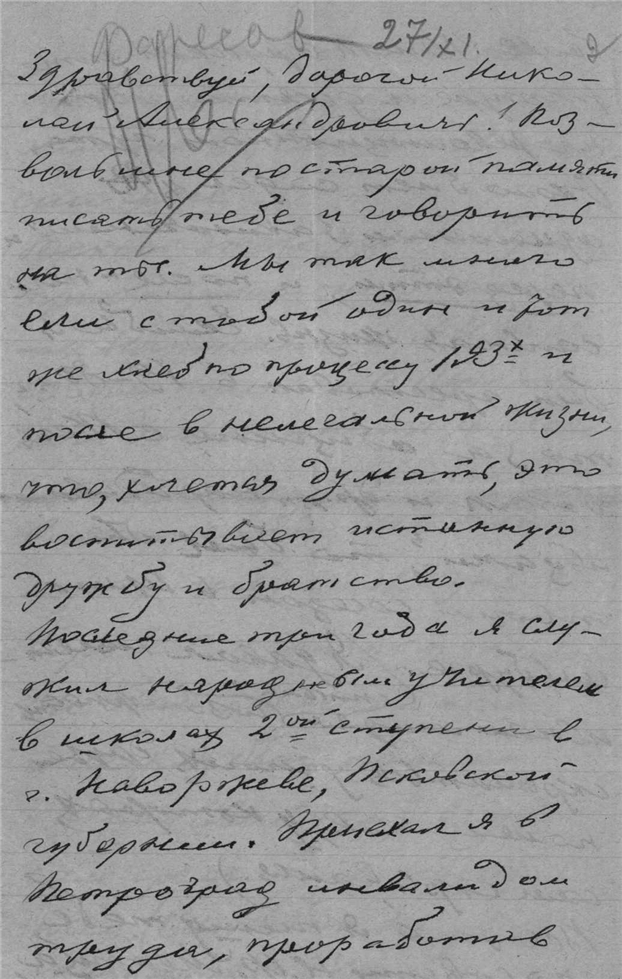 Фаресов — 27/XI. 2
Здравствуй, дорогой Нико-
лай Александрович! Поз-
воль мне по старой памяти
писать тебе и говорить
на ты. Мы так много
ели с тобой один и тот
же хлеб по процессу 193х и
после в нелегальной жизни,
что, хочется думать, это
воспитывает истинную
дружбу и братство.
Последние три года я слу-
жил народным учителем
в школах 2ой ступени в
г. Наворжеве, Псковской
губернии. Приехал я в
Петроград инвалидом
труда, проработав